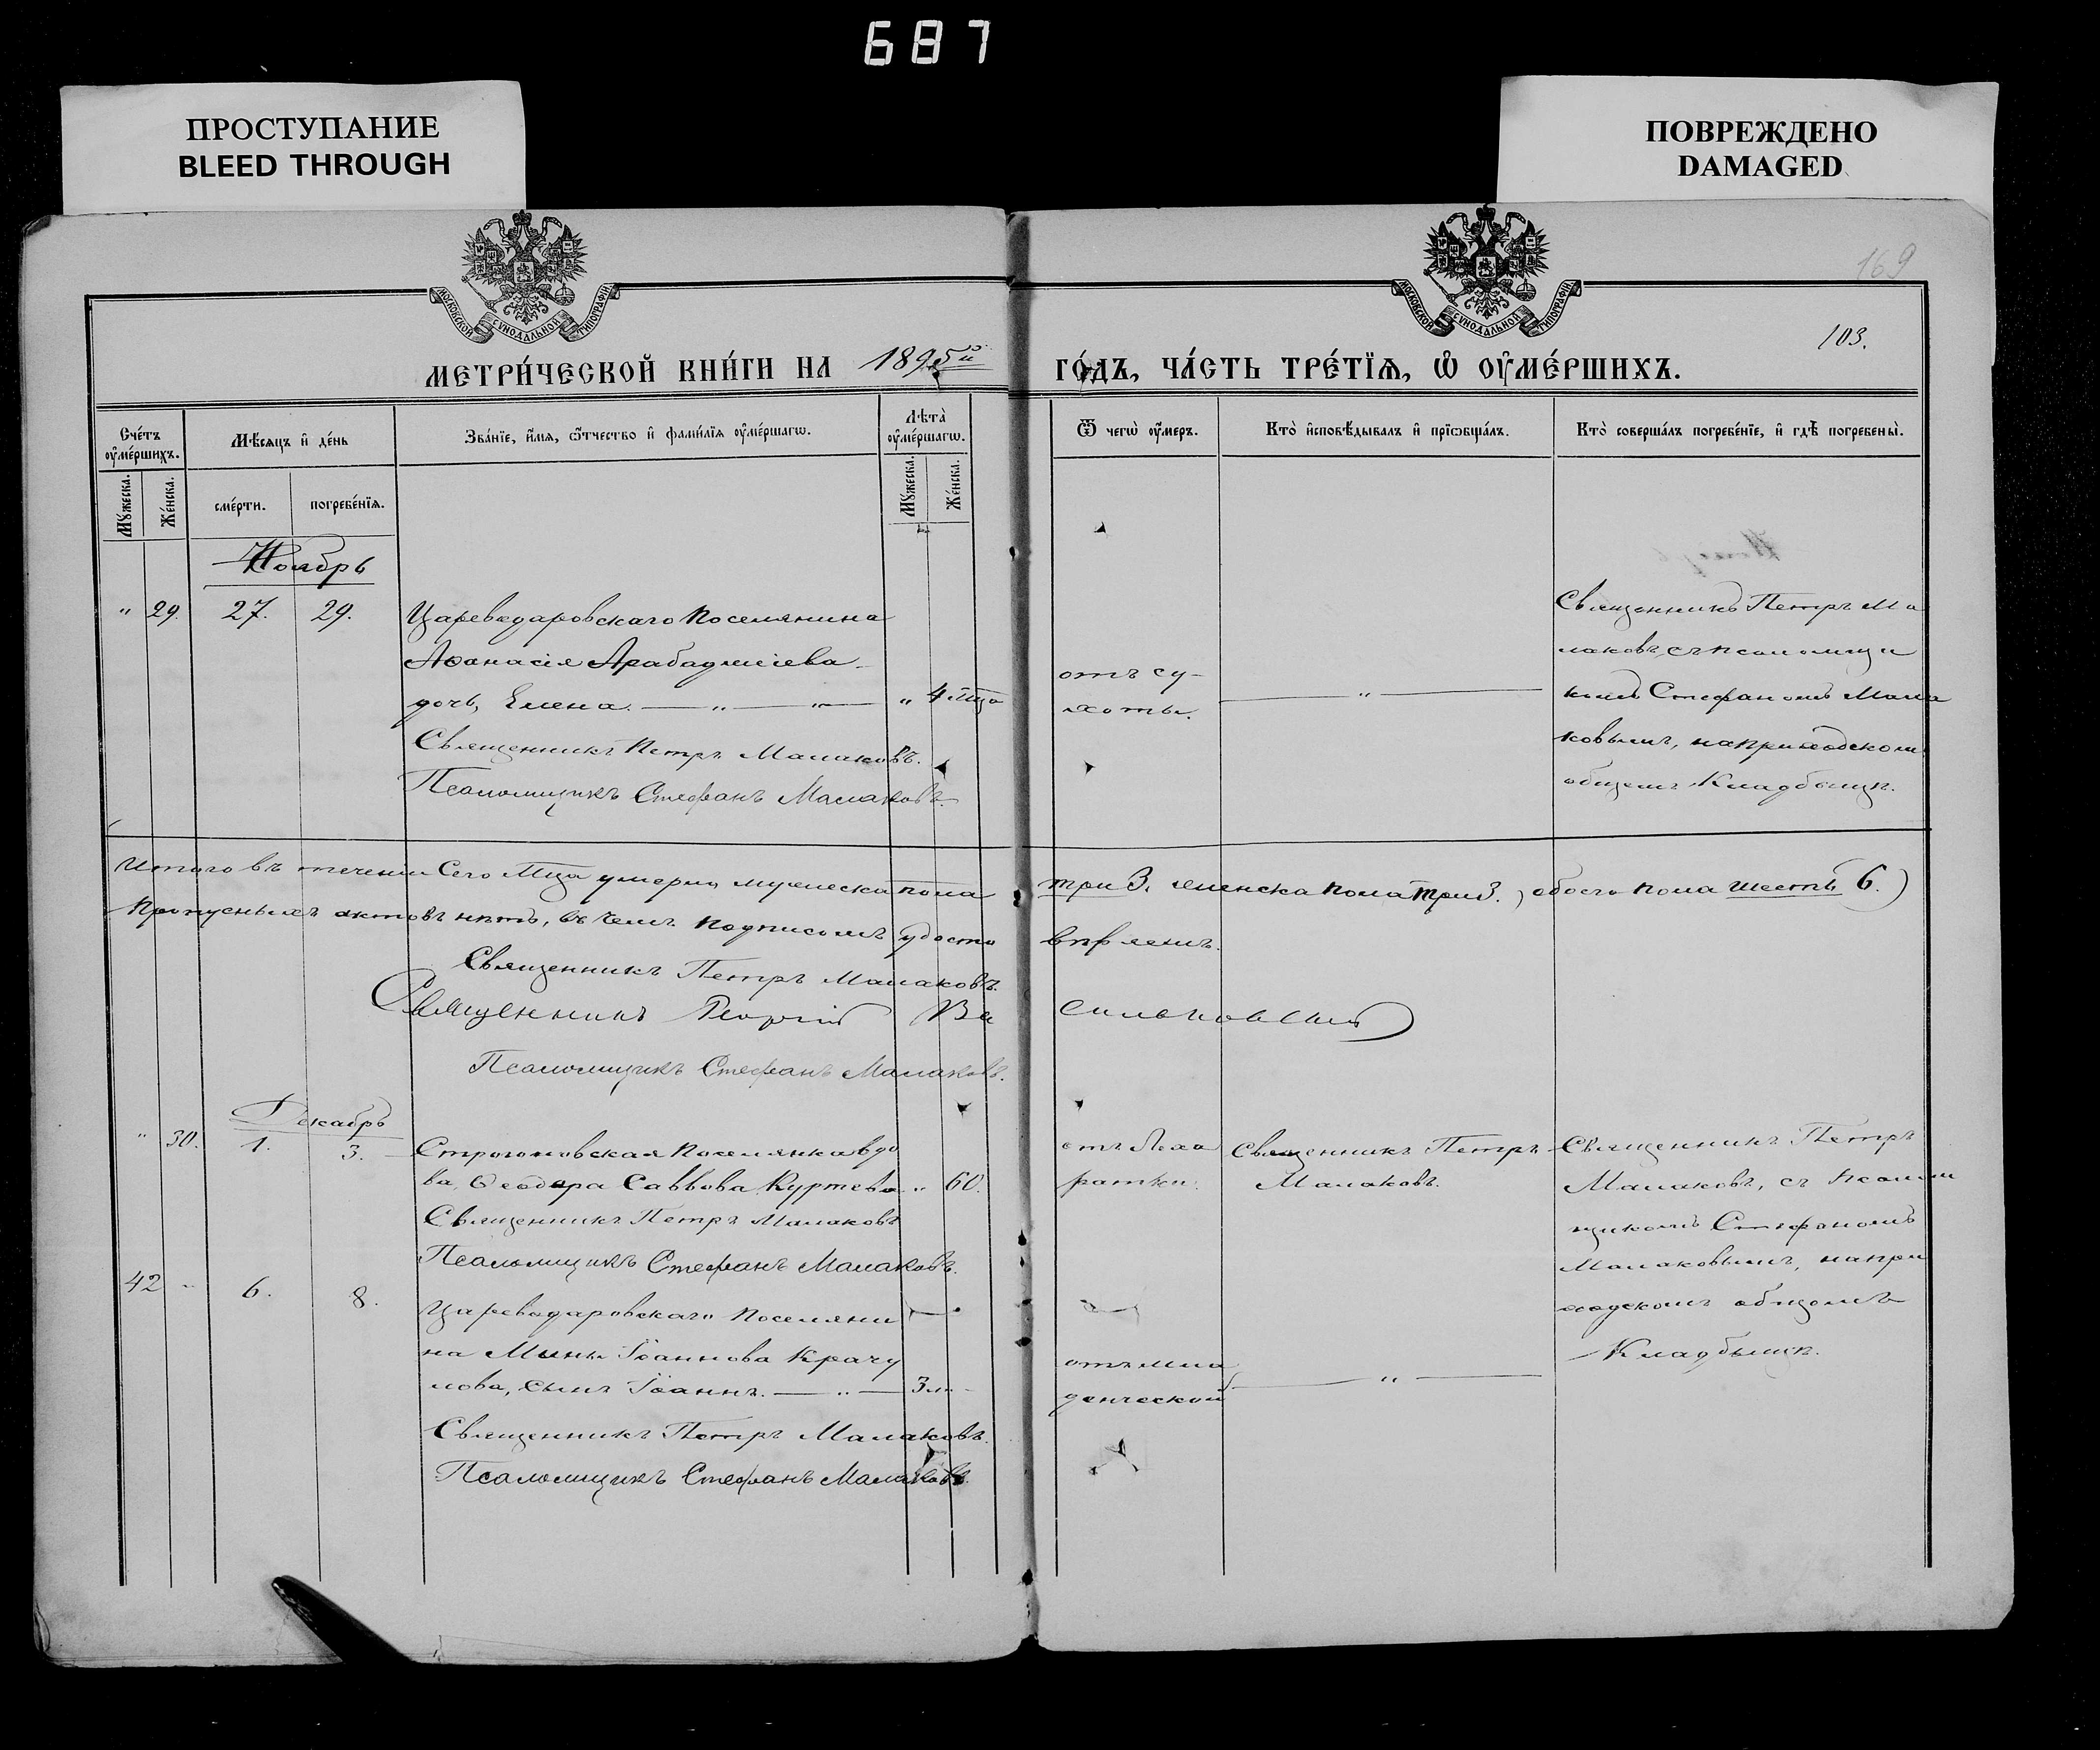 687
ПРОСТУПАНИЕ
BLEED THROUGH
ПОВРЕЖДЕНО
DAMAGED
МОСКОВСКОЙ СѴНОДАЛЬНОЙ ТИПОГРАФІИ
МОСКОВСКОЙ СѴНОДАЛЬНОЙ ТИПОГРАФІИ
169
103.
МЕТРИ́ЧЕСКОЙ КНИ́ГИ НА 1895й
ГО́ДЪ, ЧА́СТЬ ТРЕ́ТЇѦ, Ѡ҆ ОУ҆МЕ́РШИХЪ.
Сче́тъ оу҆ме́ршихъ.
Мѣ́сѧцъ и҆ де́нь
Зва́нїе, и҆́мѧ, ѻ҆́тчество и҆ фами́лїѧ оу҆ме́ршагѡ.
Лѣта̀ оу҆ме́ршагѡ.
Ѿ чегѡ̀ оу҆́меръ.
Кто̀ и҆сповѣ́дывалъ и҆ прїѡбща́лъ.
Кто̀ соверша́лъ погребе́нїе, и҆ гдѣ̀ погребены̀.
Мꙋ́жеска.
Же́нска.
сме́рти.
погребе́нїѧ.
Мꙋ́жеска.
Же́нска.
Ноябрь
" 29. 27. 29. Цареведаровскаго поселянина
Аѳанасія Арабаджіева
дочь, Елена. — " — " — " 4 мца
Священникъ Петръ Малаковъ.
Псаломщикъ Стефанъ Малаковъ.
отъ су-
хоты.
— " —
Священникъ Петръ Ма
лаковъ, съ псаломщи
комъ Стефаномъ Мала
ковымъ, на приходскомъ
общемъ Кладбищѣ.
Итого въ теченіи Сего Мца умерло мужеска пола три 3. женска пола три 3. обоего пола шесть 6.)
Пропусныхъ актовъ нѣтъ, въ чемъ подписомъ удосто вѣряемъ.
Священникъ Петръ Малаковъ.
Священникъ Георгій Ва сильковскій
Псаломщикъ Стефанъ Малаковъ.
Декабрь
" 30. 1. 3. Строгоновская поселянка вдо
ва, Ѳеодора Саввова Куртева " 60.
Священникъ Петръ Малаковъ
Псаломщикъ Стефанъ Малаковъ.
отъ лихо
радки.
Священникъ Петръ
Малаковъ.
Священникъ Петръ
Малаковъ, съ псалом
щикомъ Стефаномъ
Малаковымъ, на при
ходскомъ общемъ
Кладбищѣ.
42 " 6. 8. Цареведаровскаго поселяни
на Мины Іоаннова Крачу
нова, сынъ Іоаннъ. — " — 3 м.
Священникъ Петръ Малаковъ.
Псаломщикъ Стефанъ Малаковъ.
отъ мла
денческой
— " —